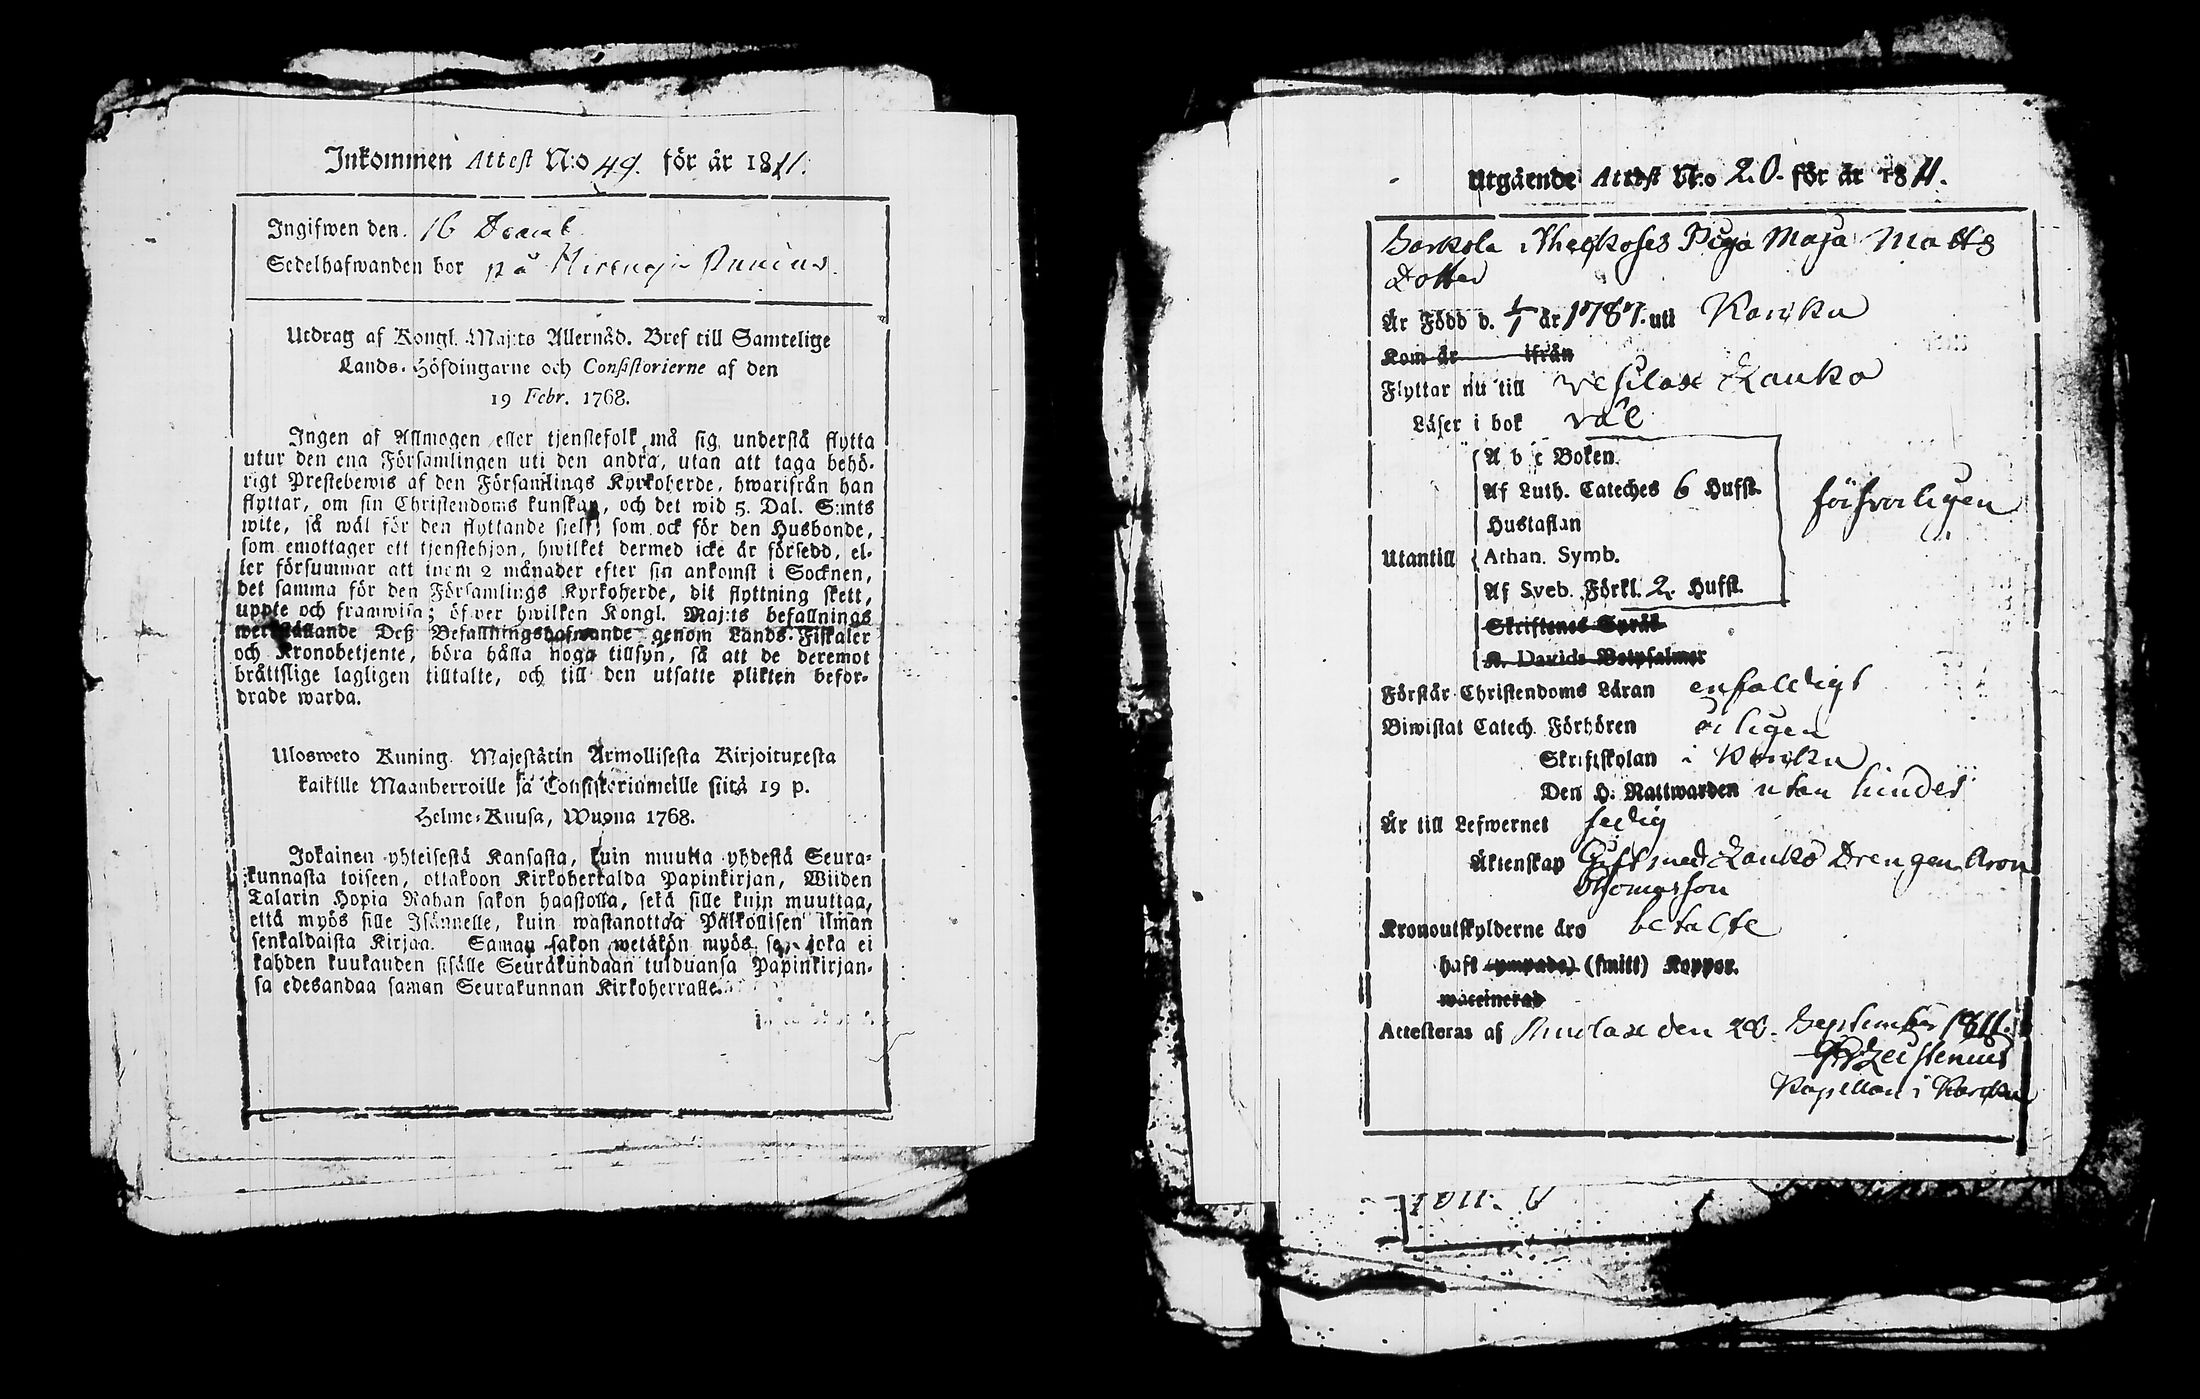 Inkommen Attest N:o 49. för år 1811.
Ingifwen den. 16 Decemb
Sedelhafwanden bor på
Utdrag af Kongl. Maj:ts Allernåd. Bref till Samtelige
Lands-Höfdingarne och Consistorierne af den
19 Febr. 1768.
Ingen af Allmogen eller tjenstefolk må sig understå flytta
utur den ena Församlingen uti den andra, utan att taga behö-
rigt Prestebewis af den Församlings Kyrkoherde, hwarifrån han
flyttar, om sin Christendoms kunskap, och det wid 5. Dal. S:mts
wite, så wäl för den flyttande sjelf, som ock för den Husbonde,
som emottager ett tjenstehjon, hwilket dermed icke är försedd, el-
ler försummar att inom 2 månader efter sin ankomst i Socknen,
det samma för den Församlings Kyrkoherde, dit flyttning skett,
uppte och framwisa; öfwer hwilken Kongl. Maj:ts befallnings
werkställande Deß Befallningshafwande genom Lands-Fiskaler
och Kronobetjente, böra hålla noga tillsyn, så att de deremot
bråttslige lagligen tilltalte, och till den utsatte plikten befor-
drade warda.
Ulosweto Kuning. Majestätin Armollisesta Kirjoituxesta
kaikille Maanherroille ja Consistoriumeille siitä 19 p.
Helme-Kuusa, Wuona 1768.
Jokainen yhteisestä Kansasta, kuin muutta yhdestä Seura-
kunnasta toiseen, ottakoon Kirkoherralda Papinkirjan, Wiiden
Talarin Hopia Rahan sakon haastolla, sekä sille kuin muuttaa,
että myös sille Isännelle, kuin wastanottaa Palkollisen ilman
senkaldaista Kirjaa. Saman sakon wetäkön myös se, joka ei
kahden kuukauden sisälle Seurakundaan tulduansa Papinkirjan-
sa edesandaa saman Seurakunnan Kirkoherralle.
Utgående Attest N:o 20. för år 1811.
Sarkola Piga Maja Matts
Dotter
Är Född d. 1/1 år 1787. uti Karcku
Kom år ifrån
Flyttar nu till Vesilax Lauko
Läser i bok väl
A b c Boken.
Af Luth. Cateches 6 Hufst.
Hustaflan
Utantill Athan. Symb.
Af Sveb. Förkl. 2. Hufst.
Skriftenes Språk
K. Davids Botpsalmer
försvarligen
Förstår Christendoms Läran enfaldigt
Biwistat Catech. Förhören årligen
Skriftskolan i Karcku
Den H. Nattwarden utan hinder
Är till Lefwernet sedig
Äktenskap Gift med Lauko Drengen Aron
Thomasson
Kronoutskylderne äro betalte
haft (ympade) (smitt) Koppor.
waccinerad
Attesteras af den 28. September 1811.
Kapellan i Karcku